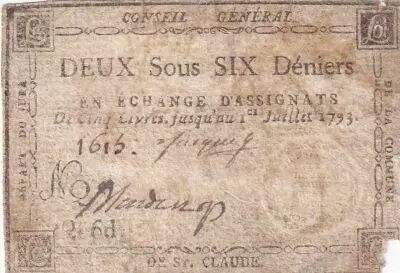 CONSEIL GÉNÉRAL
DEUX Sous SIX Déniers
EN ECHANGE D'ASSIGNATS
De Cinq Livres, jusqu'au 1er Juillet 1793.
1615.
No
2s 6d
DE St. CLAUDE
DÉPART. DU JURA
DE LA COMMUNE